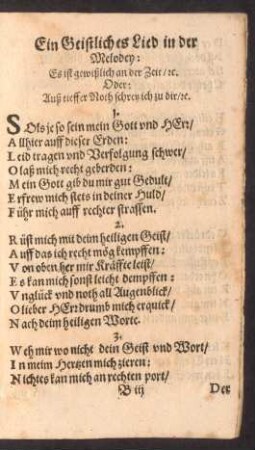 Ein Geistliches Lied in der
Melodey:
Es ist gewißlich an der Zeit/ ꝛc.
Oder:
Auß tieffer Noth schrey ich zu dir/ ꝛc.
1.
SOls je so sein mein Gott vnd HErr/
Allhier auff dieser Erden:
Leid tragen vnd Verfolgung schwer/
O laß mich recht geberden:
Mein Gott gib du mir gut Gedult/
Erfrew mich stets in deiner Huld/
Führ mich auff rechter strassen.
2.
Rüst mich mit deim heiligen Geist/
Auff das ich recht mög kempffen:
Von oben her mir Kräffte leist/
Es kan mich sonst leicht dempffen:
Vnglück vnd noth all Augenblick/
O lieber HErr drumb mich erquick/
Nach deim heiligen Worte.
3.
Weh mir wo nicht dein Geist vnd Wort/
In meim Hertzen mich zieren:
Nichtes kan mich an rechten port/
B iij Der